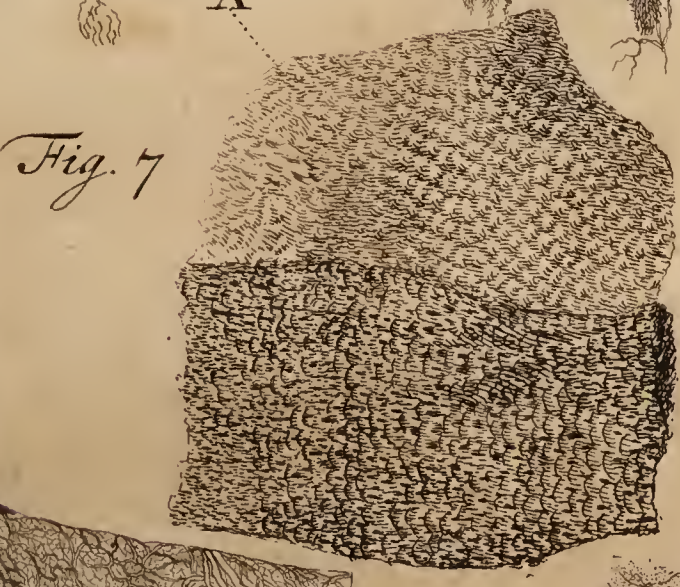 A
Fig. 7